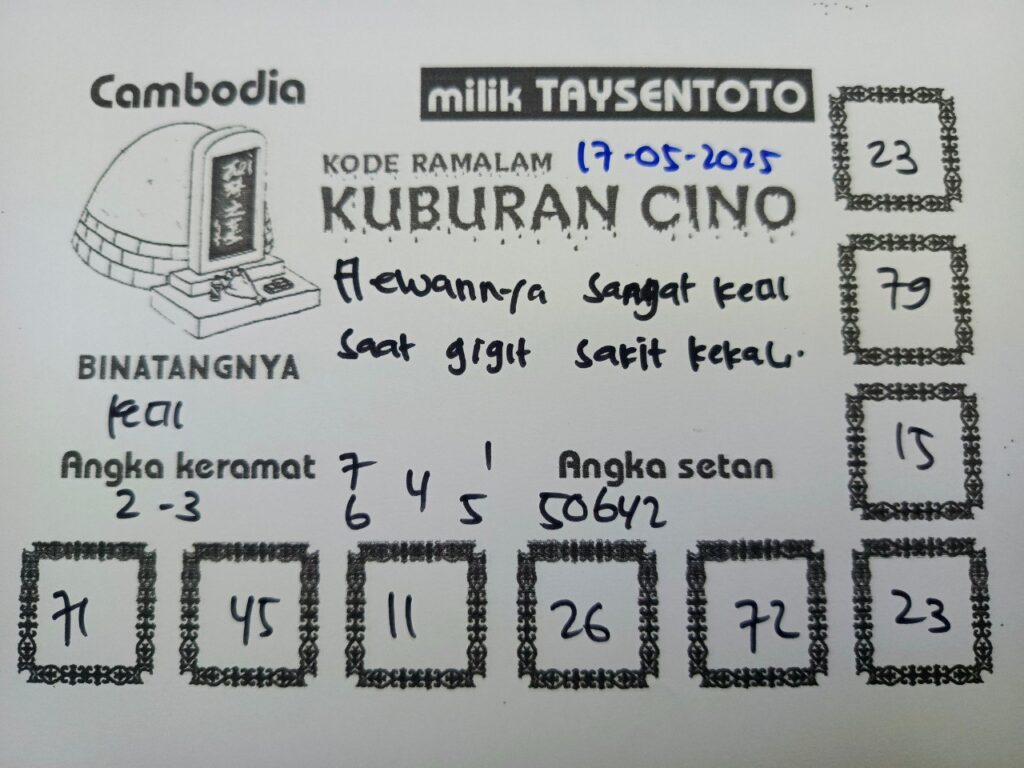 Cambodia
milik TAYSENTOTO
KODE RAMALAM 17-05-2025
KUBURAN CINO
Hewannya sangat kecil
saat gigit sakit kekal.
BINATANGNYA
kecil
Angka keramat
2-3
7 1
4
6 5
Angka setan
50642
23
79
15
71 45 11 26 72 23